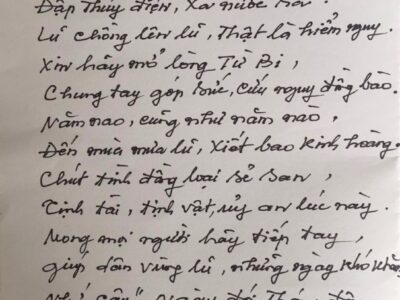 Đập Thủy điện, xả nước
Lũ chồng lên lũ, Thật là hiểm nguy.
Xin hãy mở lòng Từ Bi,
Chung tay góp sức, cứu nguy đồng bào.
Năm nao, cũng như năm nào,
Đến mùa mưa lũ, xiết bao kinh hoàng.
Chút tình đồng loại sẻ san,
Tịnh tài, tịnh vật, ủy an lúc này.
Mong mọi người hãy tiếp tay,
giúp dân vùng lũ, những ngày khó khăn